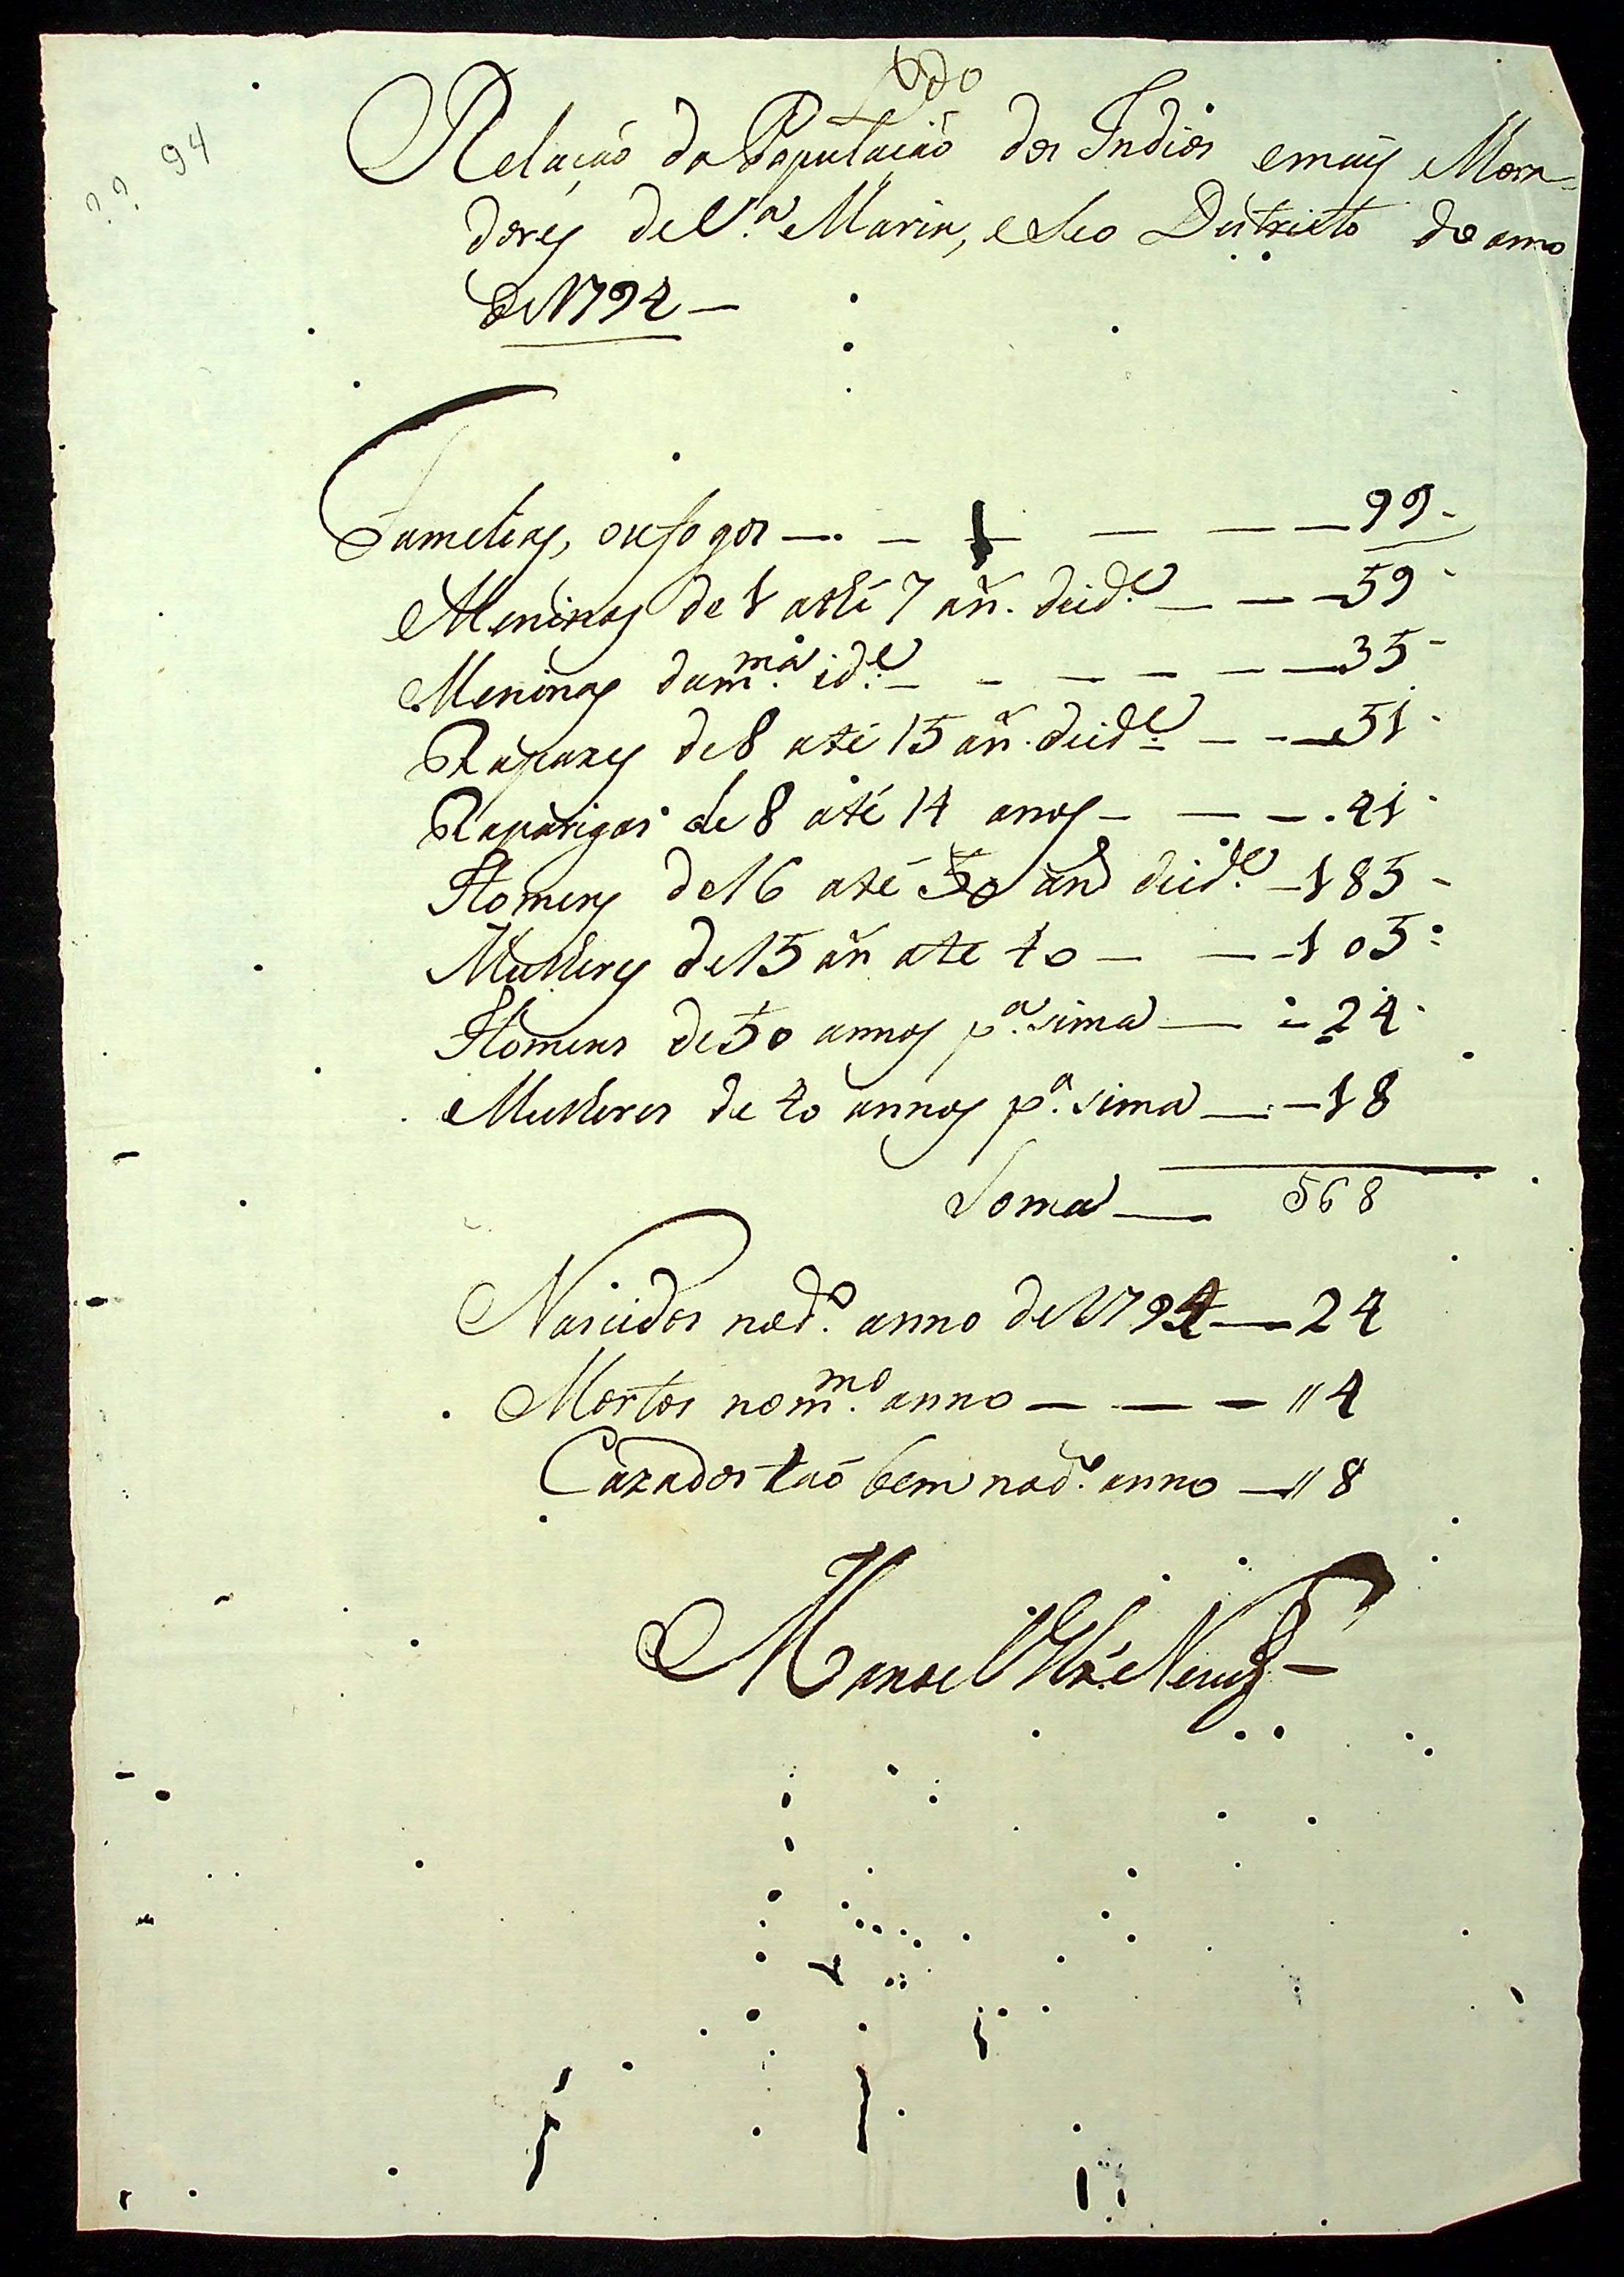 94
Relação da População dos Indios emais Mora-
dores de V.ª Maria, e Seo Districto do anno
de 1794 —
Familias, oufogos — — — — — 99 -
Meninos de 1 athé 7 añ. deid.e — — 59 -
Meninas dam.ma id.e — — — — — 35 -
Rapazes de 8 até 15 añ. deid.e — — 51 -
Raparigas de 8 até 14 anos — — — 41 -
Homens de 16 até 50 anõ deid.e — 185 -
Mulheres de 15 añ ate 40 — — 105 -
Homens de 50 annos p.ª sima — - 24 -
Mulheres de 40 annos p.ª sima — — 18
Soma — 568
Nascidos nod.º anno de 1794 — 24
Mortos nom.mo anno — — — " 4
Cazados taõ bem nod.º anno — " 8
Manoel Neves